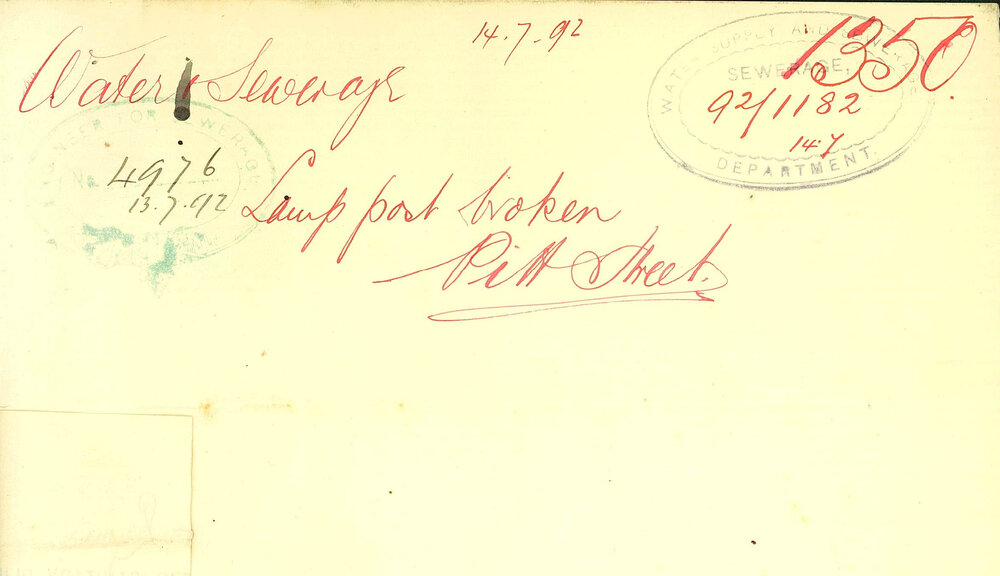 14.7.92
1350.
Water & Sewerage
WATER SUPPLY AND SEWERAGE
SEWERAGE,
92/1182
14.7
DEPARTMENT.
ENGINEER FOR SEWERAGE
No 4976
13.7.92
Lamp post broken
Pitt Street.